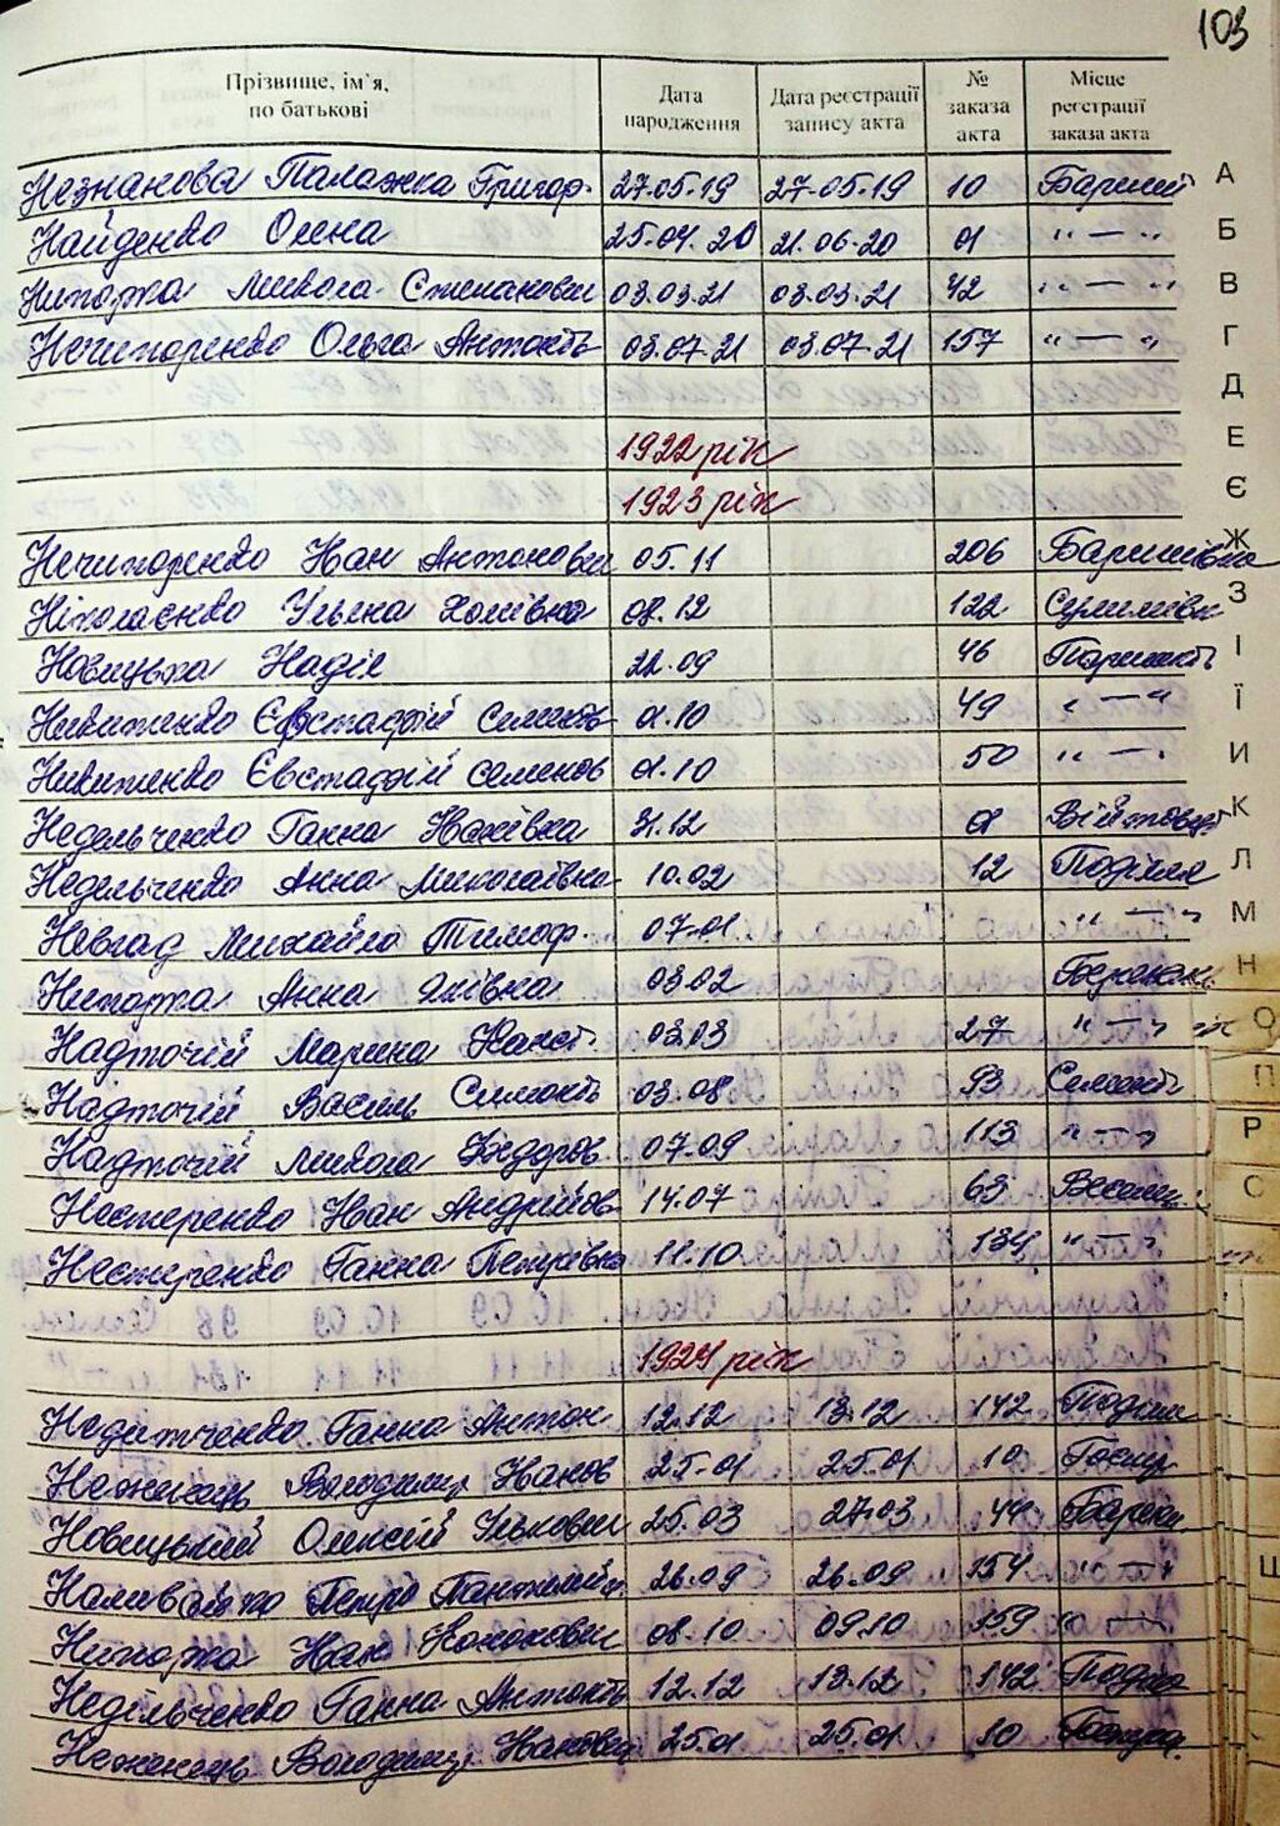 103
Прізвище, ім`я, по батькові Дата народження Дата реєстрації запису акта № заказа акта Місце реєстрації заказа акта
Незнанова Палажка Григор. 27.05.19 27.05.19 10 А
Найденко Олена 25.04.20 21.06.20 01 " — " Б
Нипорка Микола Степанович 03.03.21 03.03.21 42 " — " В
Нечипоренко Ольга Антонів 03.07.21 03.07.21 157 " — " Г
Д
1922 рік Е
1923 рік Є
Нечипоренко Іван Антонович 05.11 206 Баришівка Ж
Ніколаєнко Уляна Хомівна 08.12 122 Сулимівк З
Новицька Надія 22.09 46 І
Никитенко Євстафій Семенів 01.10 49 " — " Ї
Никитенко Євстафій Семенов 01.10 50 " — " И
Недельченко Ганна Яківна 31.12 01 К
Недельченко Анна Миколаївна 10.02 12 Поділля Л
Невгад Михайло Тимоф. 07.01 " — " М
Нипорка Анна Яківна 03.02 Н
Надточій Марина 03.03 27 " — " О
Надточій Василь 03.08 93 П
Надточій Микола Федоров 07.09 113 " — " Р
Нестеренко Іван Андрійов 14.07 63 С
Нестеренко Ганна Петрівна 11.10 134 " — "
1924 рік
Ганна Антон 12.12 13.12 142
Неженець Володимир Іванов 25.01 25.01 10
Новицький Олексій Ількович 25.03 27.03 44
Наливайко Петро 26.09 26.09 154 " — "
Нипорка Іван 08.10 09.10 159 " —
Недільченко Ганна Антонів 12.12 13.12 142
Неженець Володимир Іванович 25.01 25.01 10
Ш